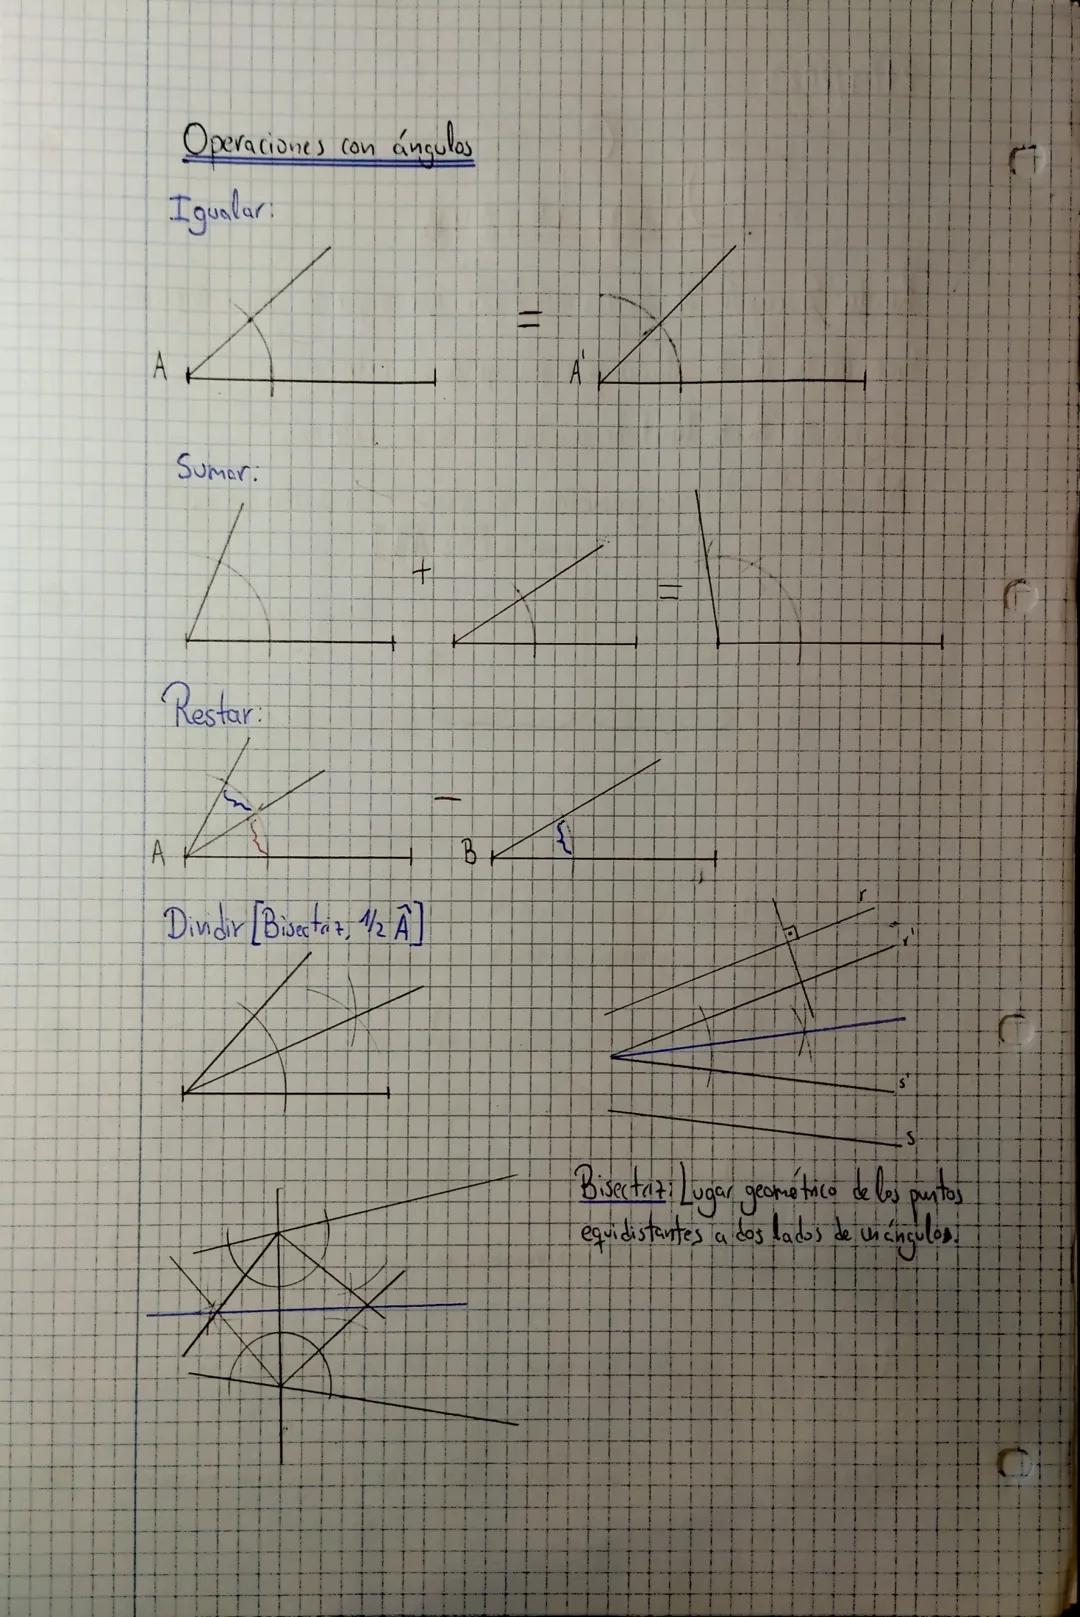 Operaciones con ángulos
Igualar:
A
=
A'
Sumar:
+
=
Restar:
A
-
B
Dividir [Bisectriz, 1/2 Â]
r
r'
s'
s
Bisectriz: Lugar geométrico de los puntos
equidistantes a dos lados de un ángulos.